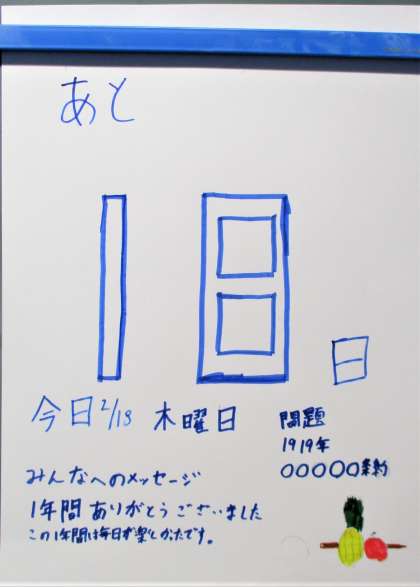 あと
18日
今日2/18 木曜日
問題
1919年
○○○○○条約
みんなへのメッセージ
1年間ありがとうございました
この1年間は毎日が楽しかたです。